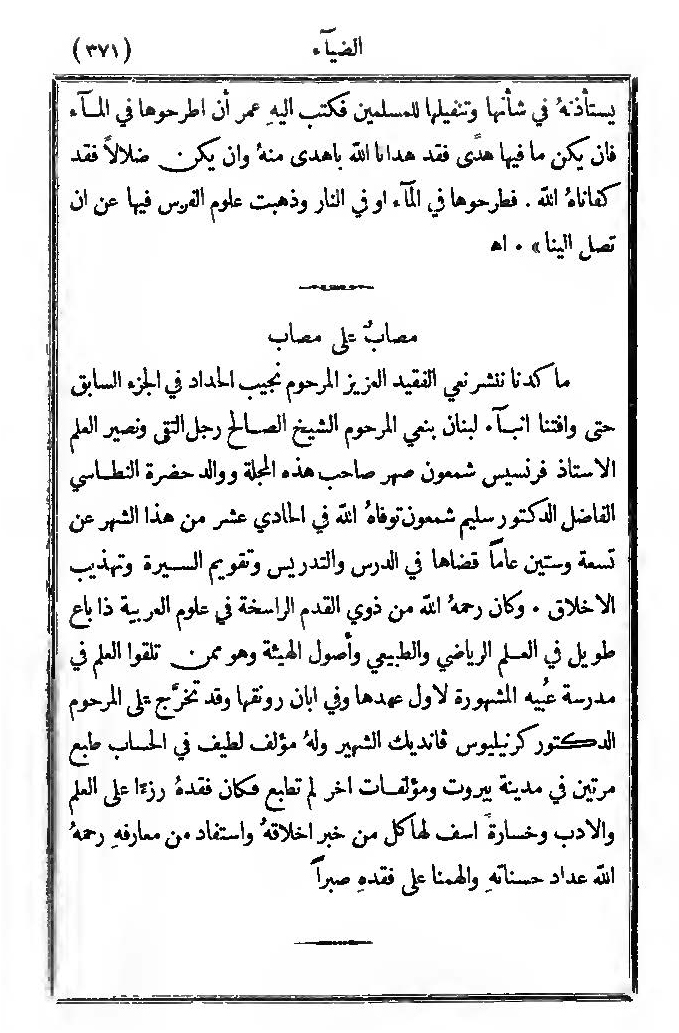 الضيآء (٣٧١)
يستأذنهُ في شأنها وتنفيلها للمسلمين فكتب اليهِ عمر أن اطرحوها في المـآء
فان يكن ما فيها هدًى فقد هدانا الله باهدى منهُ وان يكن ضلالاً فقد
كفاناهُ الله . فطرحوها في المآء او في النار وذهبت علوم الفرس فيها عن ان
تصل الينا » ٠ اه
مصابٌ على مصاب
ما كدنا ننشر نعي الفقيد العزيز المرحوم نجيب الحداد في الجزء السابق
حتى وافتنا انبـآء لبنان بنعي المرحوم الشيخ الصالح رجل التقى ونصير العلم
الاستاذ فرنسيس شمعون صهر صاحب هذه المجلة ووالد حضرة النطاسي
الفاضل الدكتور سليم شمعون توفاهُ الله في الحادي عشر من هذا الشهر عن
تسعة وستين عاماً قضاها في الدرس والتدريس وتقويم السيرة وتهذيب
الاخلاق ٠ وكان رحمهُ الله من ذوي القدم الراسخة في علوم العربية ذا باع
طويل في العلم الرياضي والطبيعي وأصول الهيئة وهو ممن تلقوا العلم في
مدرسة عبيه المشهورة لاول عهدها وفي ابان رونقها وقد تخرَّج على المرحوم
الدكتور كرنيليوس ڤانديك الشهير ولهُ مؤلف لطيف في الحساب طبع
مرتين في مدينة بيروت ومؤلفات اخر لم تطبع فكان فقدهُ رزءًا على العلم
والادب وخسارةً اسف لها كل من خبر اخلاقهُ واستفاد من معارفهِ رحمهُ
الله عداد حسناتهِ والهمنا على فقدهِ صبراً